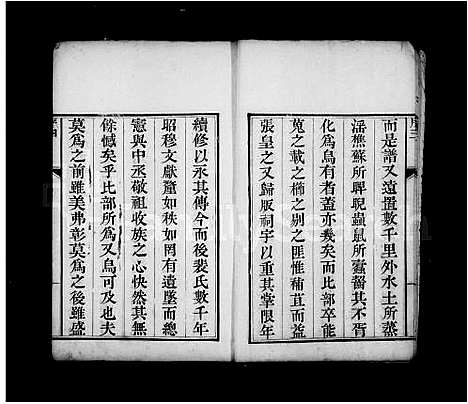 而是譜又遠置數千里外水土所蒸
淫樵蘇所睥睨蟲鼠所蠹齧其不胥
化為烏有者蓋亦幾矣而比部卒能
蒐之載之櫛之別之匪惟補苴而益
張皇之又歸版祠宇以重其掌限年
續修以永其傳今而後裴氏數千年
昭穆文獻釐如秩如罔有遺墜而總
憲與中丞敬祖收族之心快然其無
餘憾矣乎比部所為又烏可及也夫
莫為之前雖美弗彰莫為之後雖盛